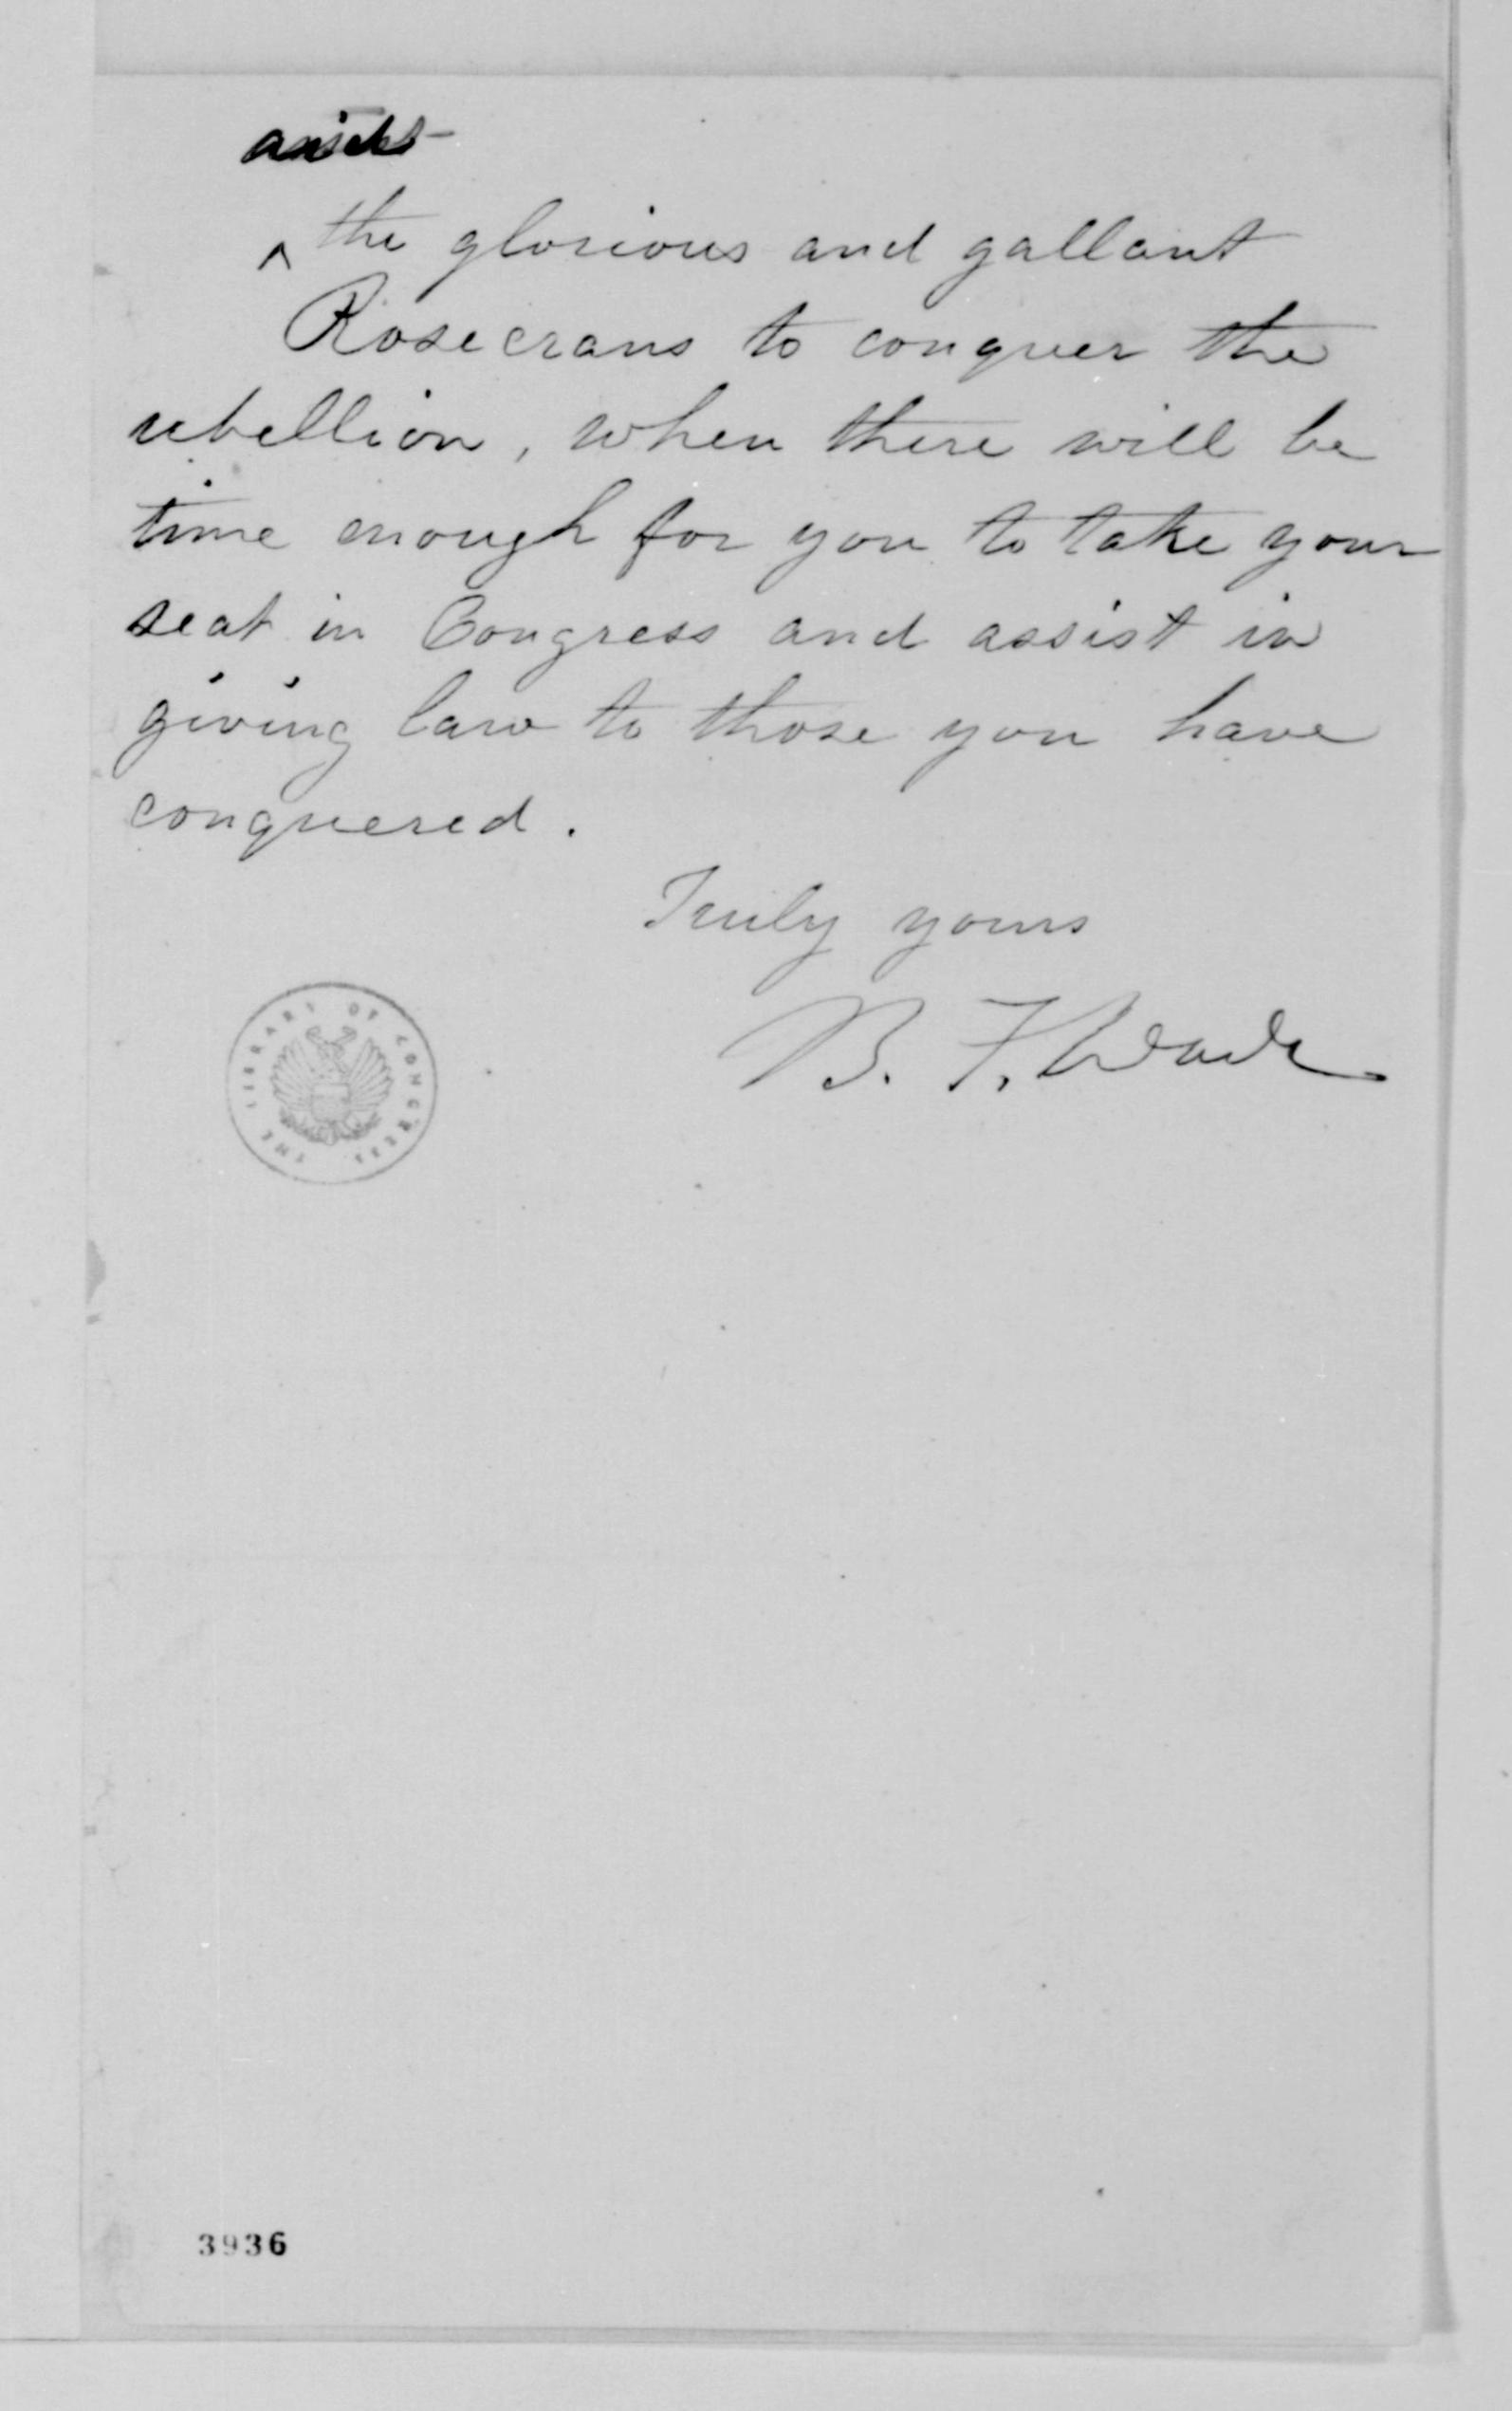 assist
^ the glorious and gallant
Rosecrans to conquer the
rebellion, when there will be
time enough for you to take your
seat in Congress and assist in
giving law to those you have
conquered.
Truly yours
B. F. Wade
THE LIBRARY OF CONGRESS
3936